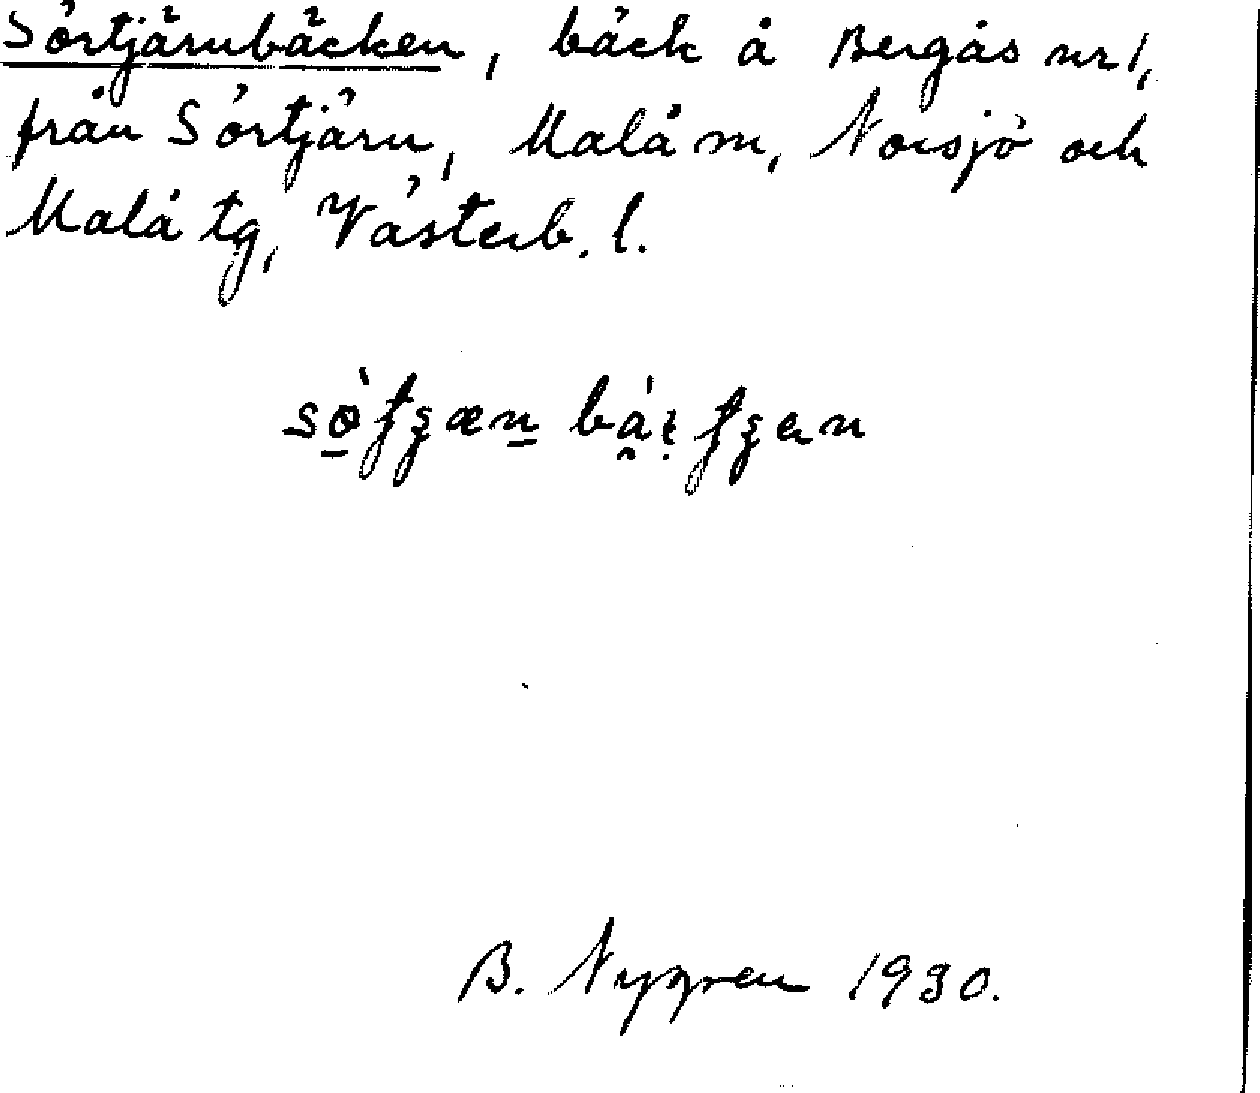 Sörtjärnbäcken, bäck å Bergås nr 1,
från Sörtjärn, Malå sn, Norsjö och
Malå tg, Västerb. l.
B. Nygren 1930.